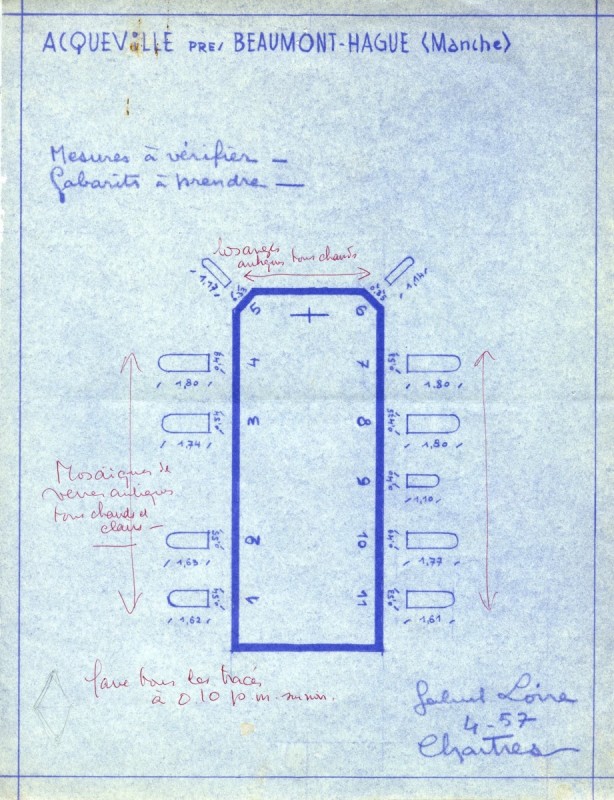 ACQUEVILLE PRES BEAUMONT-HAGUE (Manche)
Mesures à vérifier —
Gabarits à prendre —
losanges
antiques tons chauds
1,17 0,53 0,53 1,14
5 6
0,49 4 7 0,53
1,80 1.80
0,54 3 8 0,435
1,74 1,80
Mosaïques de
verres antiques
tons chauds et
clairs —
9 0,40
1,10
0,55 2 10 0,49
1,63 1,77
0,50 1 11 0,53
1,62 1,61
faire tous les tracés
à 0,10 p.m.
Gabriel Loire
4-57
Chartres